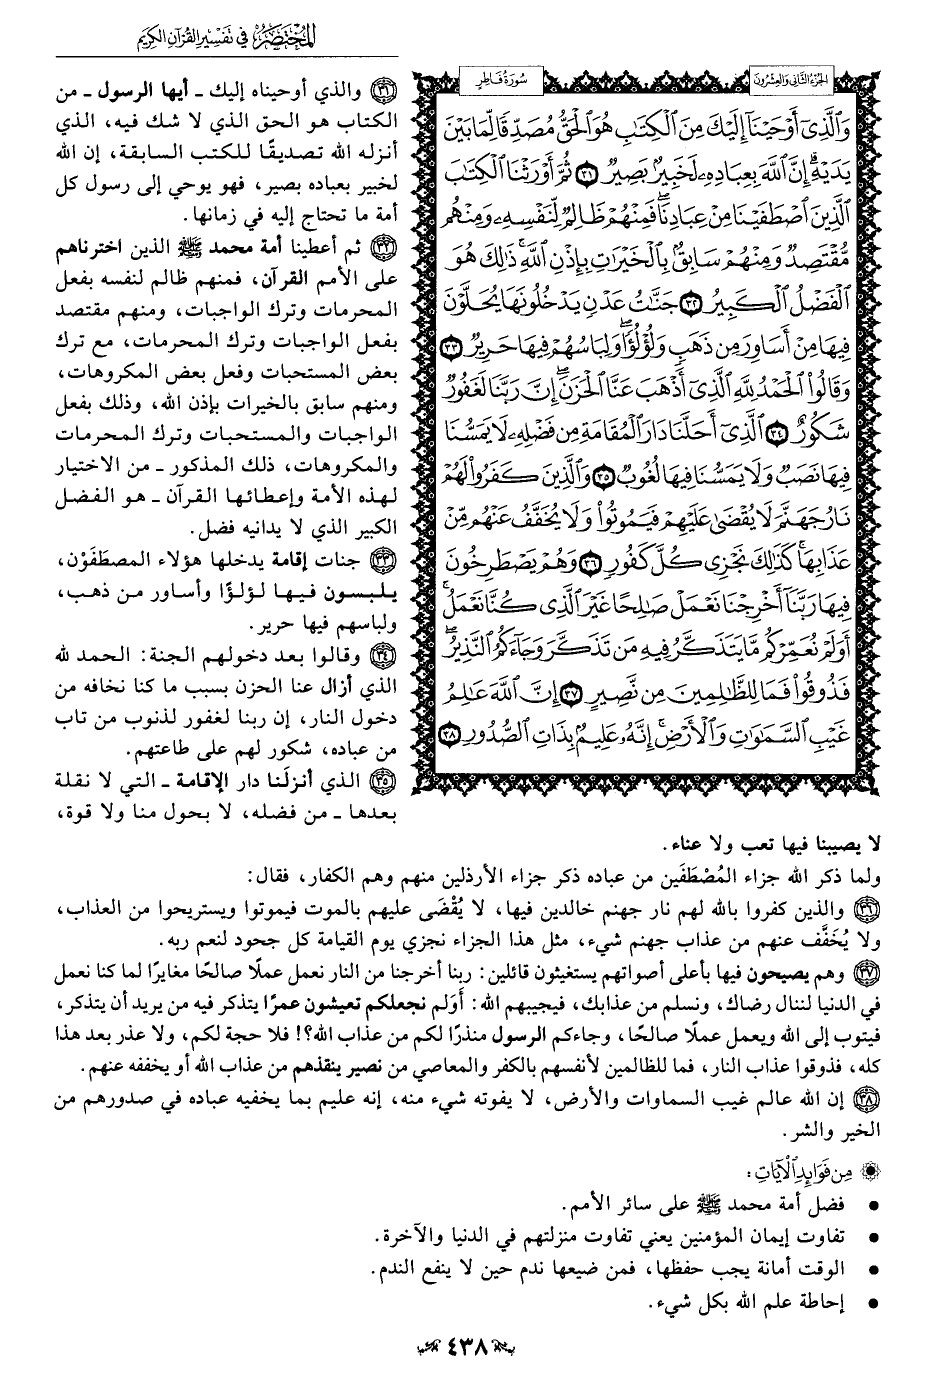 المختصر في تفسير القرآن الكريم
الجزء الثاني والعشرون
سورة فاطر
وَٱلَّذِىٓ أَوْحَيْنَآ إِلَيْكَ مِنَ ٱلْكِتَٰبِ هُوَ ٱلْحَقُّ مُصَدِّقًا لِّمَا بَيْنَ
يَدَيْهِ إِنَّ ٱللَّهَ بِعِبَادِهِۦ لَخَبِيرٌۢ بَصِيرٌ ٣١ ثُمَّ أَوْرَثْنَا ٱلْكِتَٰبَ
ٱلَّذِينَ ٱصْطَفَيْنَا مِنْ عِبَادِنَا فَمِنْهُمْ ظَالِمٌ لِّنَفْسِهِۦ وَمِنْهُم
مُّقْتَصِدٌ وَمِنْهُمْ سَابِقٌۢ بِٱلْخَيْرَٰتِ بِإِذْنِ ٱللَّهِ ذَٰلِكَ هُوَ
ٱلْفَضْلُ ٱلْكَبِيرُ ٣٢ جَنَّٰتُ عَدْنٍ يَدْخُلُونَهَا يُحَلَّوْنَ
فِيهَا مِنْ أَسَاوِرَ مِن ذَهَبٍ وَلُؤْلُؤًا وَلِبَاسُهُمْ فِيهَا حَرِيرٌ ٣٣
وَقَالُوا۟ ٱلْحَمْدُ لِلَّهِ ٱلَّذِىٓ أَذْهَبَ عَنَّا ٱلْحَزَنَ إِنَّ رَبَّنَا لَغَفُورٌ
شَكُورٌ ٣٤ ٱلَّذِىٓ أَحَلَّنَا دَارَ ٱلْمُقَامَةِ مِن فَضْلِهِۦ لَا يَمَسُّنَا
فِيهَا نَصَبٌ وَلَا يَمَسُّنَا فِيهَا لُغُوبٌ ٣٥ وَٱلَّذِينَ كَفَرُوا۟ لَهُمْ
نَارُ جَهَنَّمَ لَا يُقْضَىٰ عَلَيْهِمْ فَيَمُوتُوا۟ وَلَا يُخَفَّفُ عَنْهُم مِّنْ
عَذَابِهَا كَذَٰلِكَ نَجْزِى كُلَّ كَفُورٍ ٣٦ وَهُمْ يَصْطَرِخُونَ
فِيهَا رَبَّنَآ أَخْرِجْنَا نَعْمَلْ صَٰلِحًا غَيْرَ ٱلَّذِى كُنَّا نَعْمَلُ
أَوَلَمْ نُعَمِّرْكُم مَّا يَتَذَكَّرُ فِيهِ مَن تَذَكَّرَ وَجَآءَكُمُ ٱلنَّذِيرُ
فَذُوقُوا۟ فَمَا لِلظَّٰلِمِينَ مِن نَّصِيرٍ ٣٧ إِنَّ ٱللَّهَ عَٰلِمُ
غَيْبِ ٱلسَّمَٰوَٰتِ وَٱلْأَرْضِ إِنَّهُۥ عَلِيمٌۢ بِذَاتِ ٱلصُّدُورِ ٣٨
٣١ والذي أوحيناه إليك ـ أيها الرسول ـ من
الكتاب هو الحق الذي لا شك فيه، الذي
أنزله الله تصديقًا للكتب السابقة، إن الله
لخبير بعباده بصير، فهو يوحي إلى رسول كل
أمة ما تحتاج إليه في زمانها.
٣٢ ثم أعطينا أمة محمد ﷺ الذين اخترناهم
على الأمم القرآن، فمنهم ظالم لنفسه بفعل
المحرمات وترك الواجبات، ومنهم مقتصد
بفعل الواجبات وترك المحرمات، مع ترك
بعض المستحبات وفعل بعض المكروهات،
ومنهم سابق بالخيرات بإذن الله، وذلك بفعل
الواجبات والمستحبات وترك المحرمات
والمكروهات، ذلك المذكور ـ من الاختيار
لهذه الأمة وإعطائها القرآن ـ هو الفضل
الكبير الذي لا يدانيه فضل.
٣٣ جنات إقامة يدخلها هؤلاء المصطفَوْن،
يلبسون فيها لؤلؤًا وأساور من ذهب،
ولباسهم فيها حرير.
٣٤ وقالوا بعد دخولهم الجنة: الحمد لله
الذي أزال عنا الحزن بسبب ما كنا نخافه من
دخول النار، إن ربنا لغفور لذنوب من تاب
من عباده، شكور لهم على طاعتهم.
٣٥ الذي أنزلَنا دار الإقامة ـ التي لا نقلة
بعدها ـ من فضله، لا بحول منا ولا قوة،
لا يصيبنا فيها تعب ولا عناء.
ولما ذكر الله جزاء المُصْطَفَين من عباده ذكر جزاء الأرذلين منهم وهم الكفار، فقال:
٣٦ والذين كفروا بالله لهم نار جهنم خالدين فيها، لا يُقْضَى عليهم بالموت فيموتوا ويستريحوا من العذاب،
ولا يُخَفَّف عنهم من عذاب جهنم شيء، مثل هذا الجزاء نجزي يوم القيامة كل جحود لنعم ربه.
٣٧ وهم يصيحون فيها بأعلى أصواتهم يستغيثون قائلين: ربنا أخرجنا من النار نعمل عملًا صالحًا مغايرًا لما كنا نعمل
في الدنيا لننال رضاك، ونسلم من عذابك، فيجيبهم الله: أَوَلم نجعلكم تعيشون عمرًا يتذكر فيه من يريد أن يتذكر،
فيتوب إلى الله ويعمل عملًا صالحًا، وجاءكم الرسول منذرًا لكم من عذاب الله؟! فلا حجة لكم، ولا عذر بعد هذا
كله، فذوقوا عذاب النار، فما للظالمين لأنفسهم بالكفر والمعاصي من نصير ينقذهم من عذاب الله أو يخففه عنهم.
٣٨ إن الله عالم غيب السماوات والأرض، لا يفوته شيء منه، إنه عليم بما يخفيه عباده في صدورهم من
الخير والشر.
من فوائد الآيات:
• فضل أمة محمد ﷺ على سائر الأمم.
• تفاوت إيمان المؤمنين يعني تفاوت منزلتهم في الدنيا والآخرة.
• الوقت أمانة يجب حفظها، فمن ضيعها ندم حين لا ينفع الندم.
• إحاطة علم الله بكل شيء.
٤٣٨